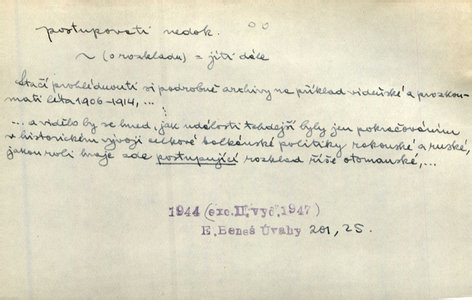 postupovati nedok.
~ (o rozkladu) = jíti dále
Stačí prohlédnouti si podrobně archivy na příklad vídeňské a prozkou-
mati léta 1906-1914, ...
... a vidělo by se hned, jak události tehdejší byly jen pokračováním
v historickém vývoji celkové balkánské politiky rakouské a ruské,
jakou roli hraje zde postupující rozklad říše otomanské, ...
1944 (exc. II. vyd. 1947)
E. Beneš Úvahy 201, 25.